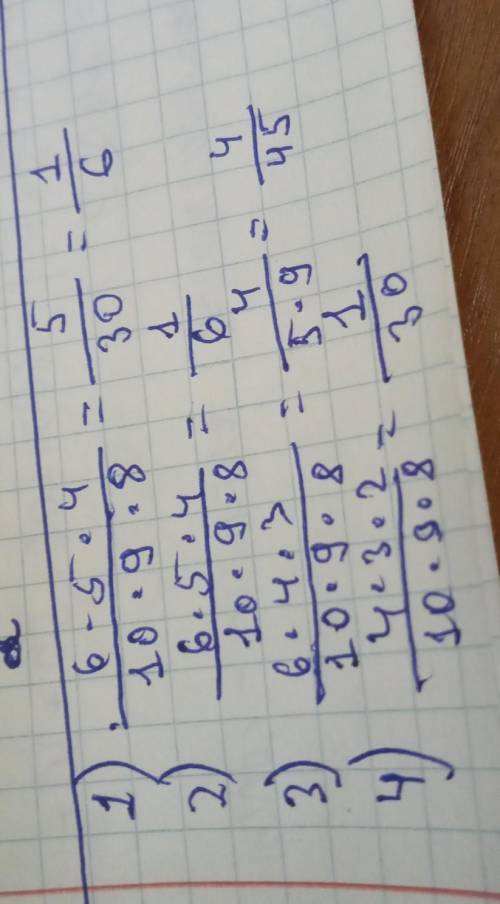 1) (6 · 5 · 4)/(10 · 9 · 8) = 5/30 = 1/6
2) (6 · 5 · 4)/(10 · 9 · 8) = 1/6
3) (6 · 4 · 3)/(10 · 9 · 8) = 4/(5 · 9) = 4/45
4) (4 · 3 · 2)/(10 · 9 · 8) = 1/30